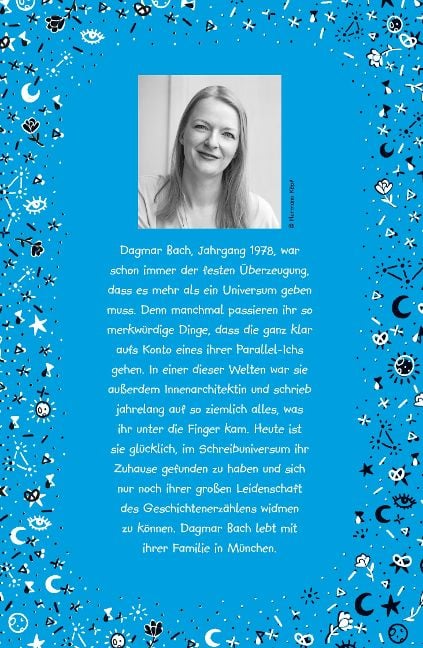 © Hermann Köpf
Dagmar Bach, Jahrgang 1978, war
schon immer der festen Überzeugung,
dass es mehr als ein Universum geben
muss. Denn manchmal passieren ihr so
merkwürdige Dinge, dass die ganz klar
aufs Konto eines ihrer Parallel-Ichs
gehen. In einer dieser Welten war sie
außerdem Innenarchitektin und schrieb
jahrelang auf so ziemlich alles, was
ihr unter die Finger kam. Heute ist
sie glücklich, im Schreibuniversum ihr
Zuhause gefunden zu haben und sich
nur noch ihrer großen Leidenschaft
des Geschichtenerzählens widmen
zu können. Dagmar Bach lebt mit
ihrer Familie in München.